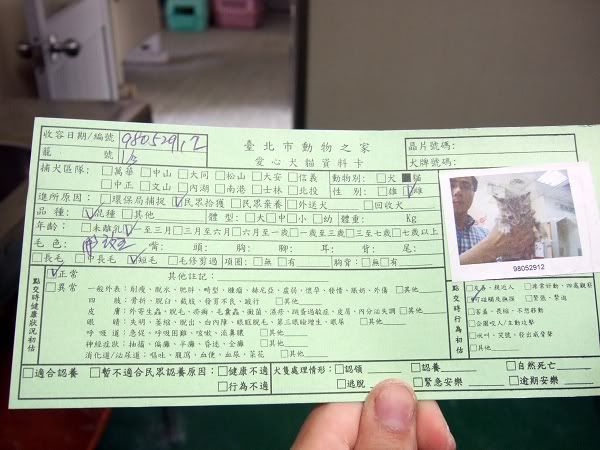 收容日期/編號 98052912
臺北市動物之家
晶片號碼:
籠號
愛心犬貓資料卡
犬牌號碼:
捕犬區隊: □萬華 □中山 □大同 □松山 □大安 □信義 動物別: □犬 ■貓
□中正 □文山 □內湖 □南港 □士林 □北投 性別: □雄 ☑雌
進所原因: □環保局捕捉 ☑民眾拾獲 □民眾棄養 □外送犬 □回收犬
品種: ☑混種 □其他 體型: □大 □中 □小 □幼 體重: Kg
年齡: □未離乳 ☑一至三月 □三月至六月 □六月至一歲 □一歲至三歲 □三至七歲 □七歲以上
毛色: 嘴: 頭: 胸: 腳: 耳: 背: 尾:
□長毛 □中長毛 ☑短毛 □毛修剪過 項圈: □無 □有 胸背: □無 □有
98052912
點交時健康狀況初估
☑正常
□異常
其他註記:
一般外表: 削瘦、脫水、肥胖、畸型、腫瘤、赫尼亞、虛弱、懷孕、發情、脹奶、外傷 □其他
四肢: 骨折、脫臼、截肢、發育不良、跛行 □其他
皮膚: 外寄生蟲、脫毛、疥癬、毛囊蟲、黴菌、濕疹、跳蚤過敏症、皮屑、內分泌失調 □其他
眼睛: 失明、萎縮、脫出、白內障、眼瞼脫毛、第三眼瞼增生、眼屎 □其他
呼吸道: 急促、呼吸困難、咳嗽、流鼻膿 □其他
神經症狀: 抽搐、偏癱、半癱、昏迷、全癱 □其他
消化道/泌尿道: 嘔吐、腹瀉、血便、血尿、菜花 □其他
點交時行為初估
□友善、親近人 □非常好動、四處觀察
☑可碰觸及撫摸 □緊張、緊迫
□害羞、畏縮、不想動
□企圖咬人/主動攻擊
□吠叫、哭號、發出威脅聲
□其他
□適合認養 □暫不適合民眾認養原因: □健康不適 犬隻處理情形: □認領 □認養 □自然死亡
□行為不適 □逃脫 □緊急安樂 □逾期安樂